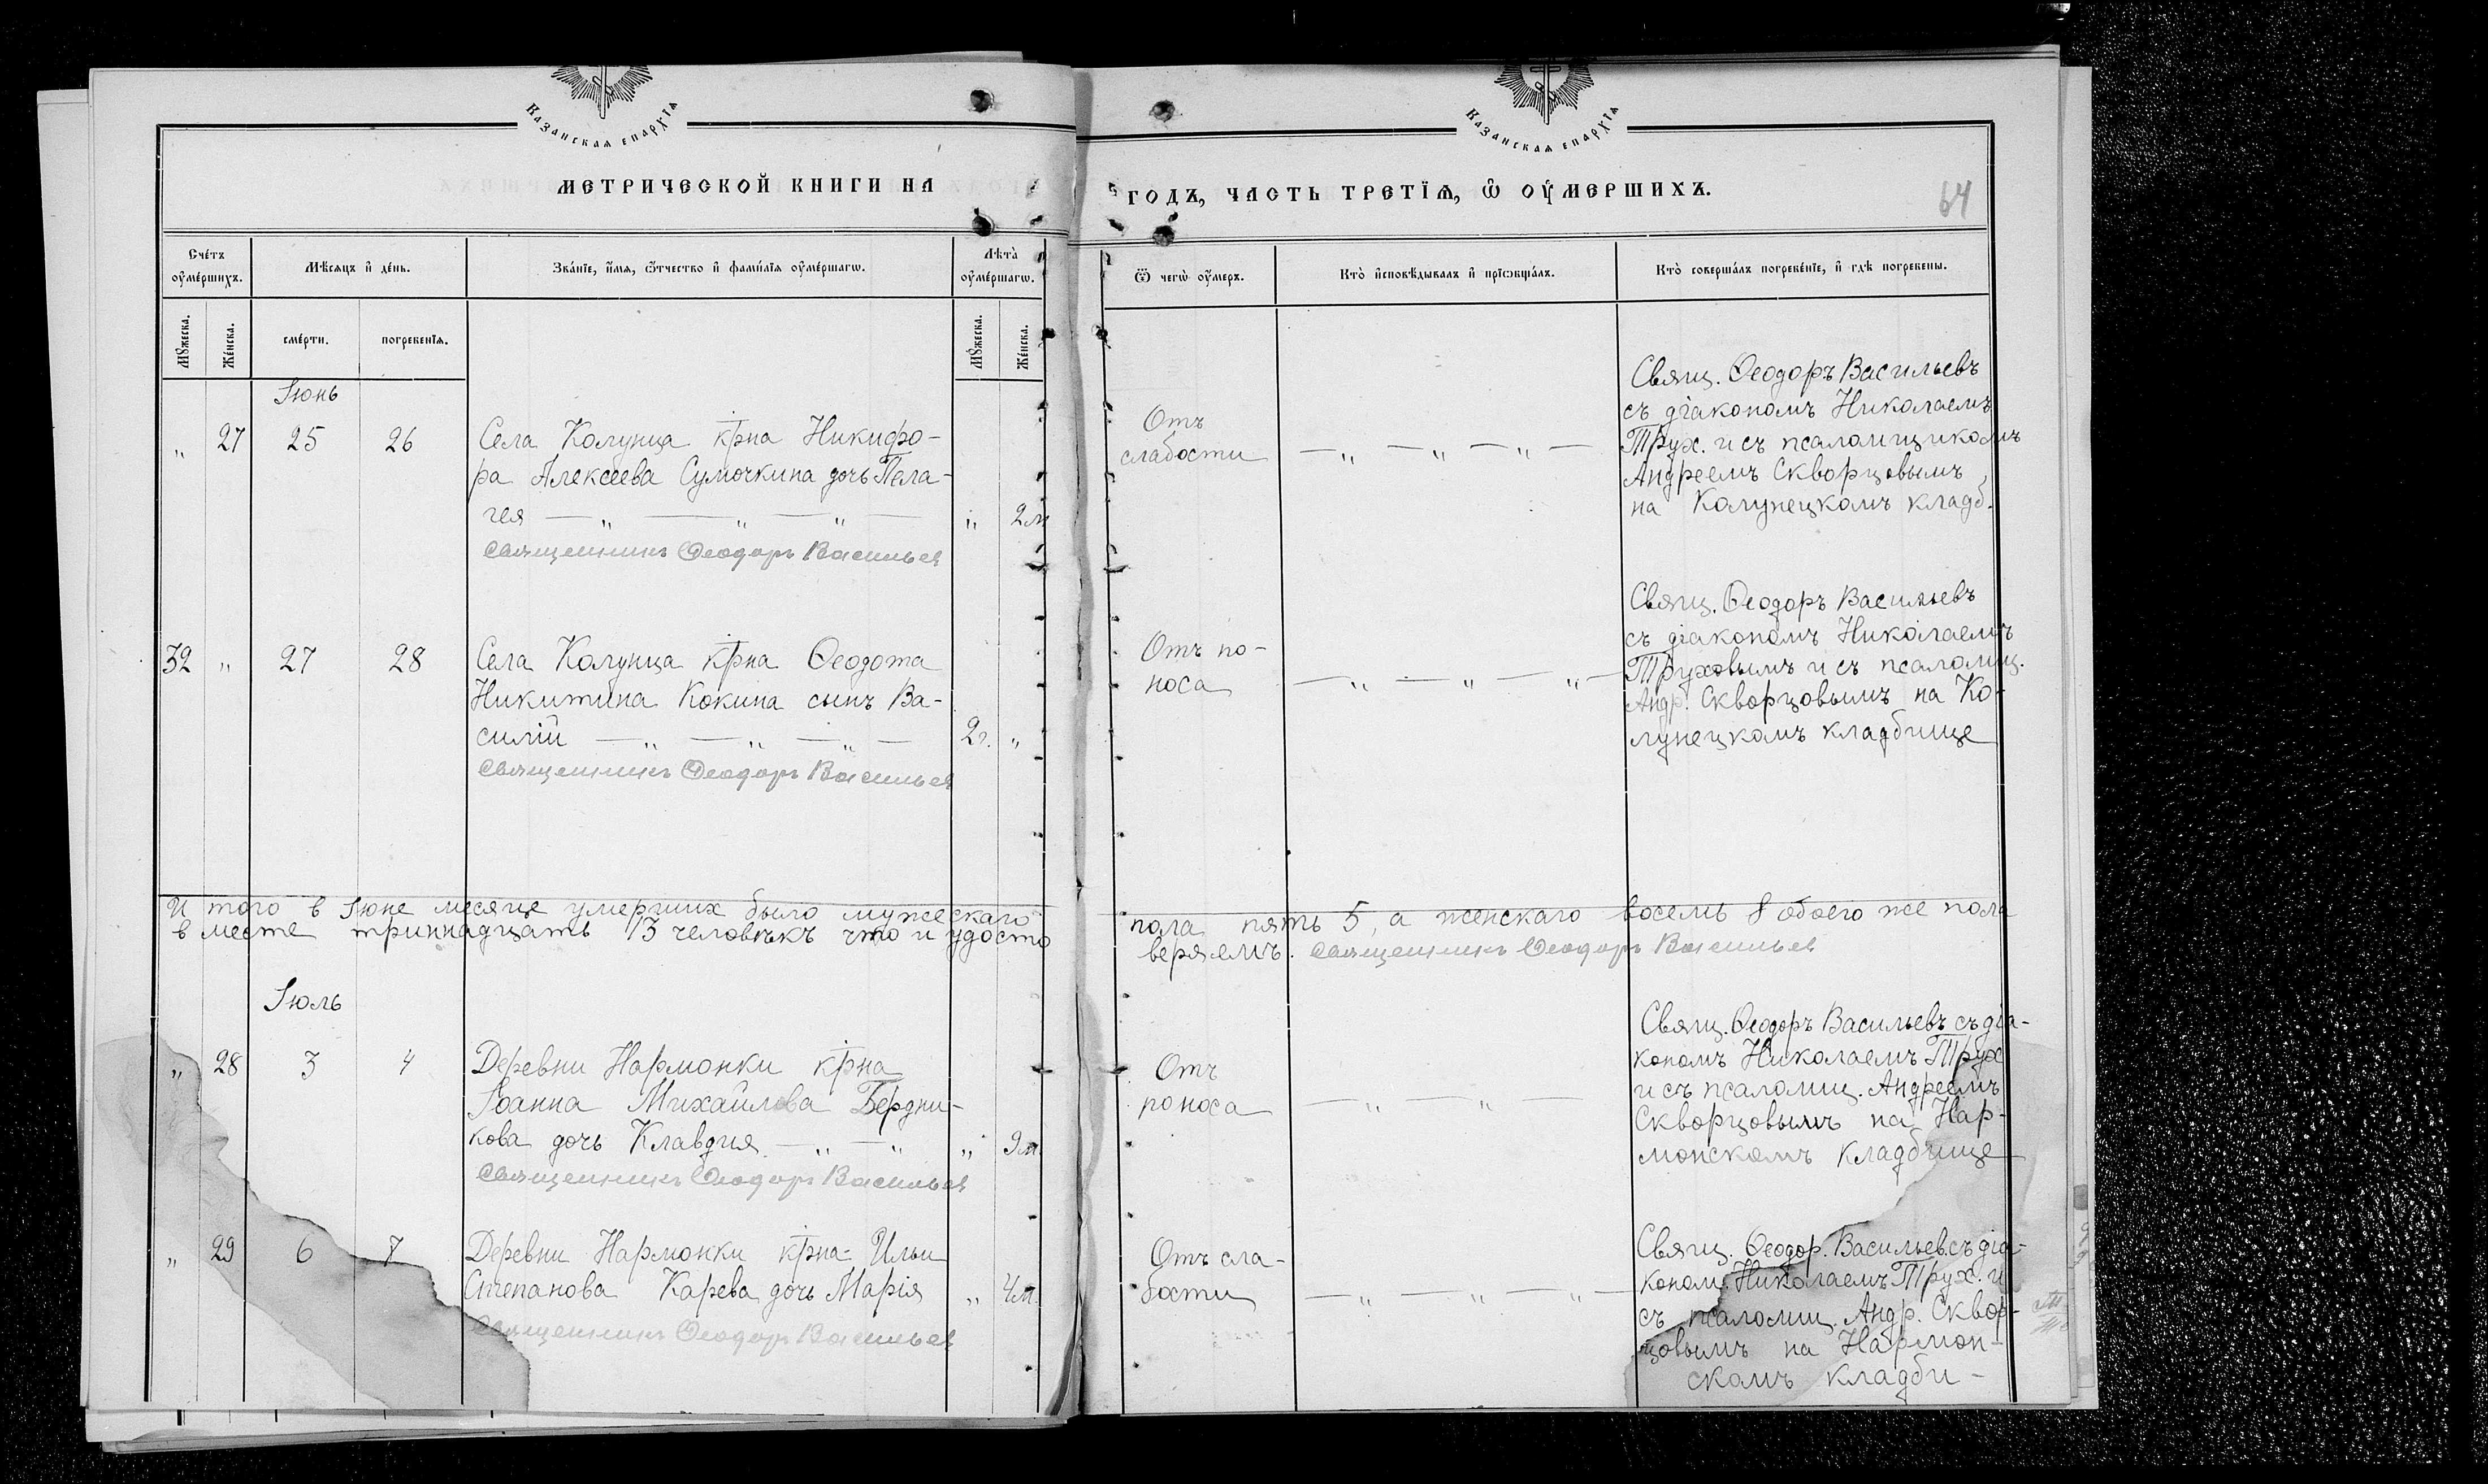 Казанская епархїѧ
Казанская епархїѧ
МЕТРИЧЕСКОЙ КНИГИ НА
ГОДЪ, ЧАСТЬ ТРЕТЇѦ, Ѡ ОУМЕРШИХЪ.
64
Счетъ оумершихъ.
Мѣсяцъ и день.
Званїе, имѧ, ѿчество и фамилїѧ оумершагѡ.
Лѣта оумершагѡ.
Ѿ чегѡ оумеръ.
Кто исповѣдывалъ и прїобщалъ.
Кто совершалъ погребенїе, и гдѣ погребены.
Мужеска.
Женска.
смерти.
погребенїѧ.
Мужеска.
Женска.
Іюнь
„ 27 25 26
Села Колунца крна Никифо-
ра Алексѣева Сумочкина дочь Пела-
гея — „ — „ — „ — „ 2 м
Священникъ Ѳеодоръ Васильев
Отъ
слабости — „ — „ — „ —
Свящ. Ѳеодоръ Васильевъ
съ діакономъ Николаемъ
Трух. и съ псаломщикомъ
Андреемъ Скворцовымъ
на Колунецкомъ кладб.
32 „ 27 28
Села Колунца крна Ѳеодота
Никитина Кокина сынъ Ва-
силій — „ — „ — „ — 2 г. „
Священникъ Ѳеодоръ Васильев
Отъ по-
носа — „ — „ — „ —
Свящ. Ѳеодоръ Васильевъ
съ діакономъ Николаемъ
Труховымъ и съ псаломщ.
Андр. Скворцовымъ на Ко-
лунецкомъ кладбище
И того в Іюне месяце умерших было мужескаго пола пять 5, а женскаго восемь 8 обоего же пола
в месте триннадцать 13 человѣкъ что и удосто
веряемъ. Священникъ Ѳеодоръ Васильев
Іюль
„ 28 3 4
Деревни Нармонки крна
Іоанна Михайлова Бердни-
кова дочь Клавдия — „ — „ „ 9 м.
Священникъ Ѳеодоръ Васильев
Отъ
поноса — „ — „ —
Свящ. Ѳеодоръ Васильевъ съ діа-
кономъ Николаемъ Трух
и съ псаломщ. Андреемъ
Скворцовымъ на Нар-
монскомъ кладбище
„ 29 6 7
Деревни Нармонки крна Ильи
Степанова Карева дочь Марія „ 4 м.
Священникъ Ѳеодоръ Васильев
Отъ сла-
бости — „ — „ — „ —
Свящ. Ѳеодор. Васильев. съ діа-
коном. Николаемъ Трух. и
съ псаломщ. Андр. Сквор-
цовымъ на Нармон-
скомъ кладби-